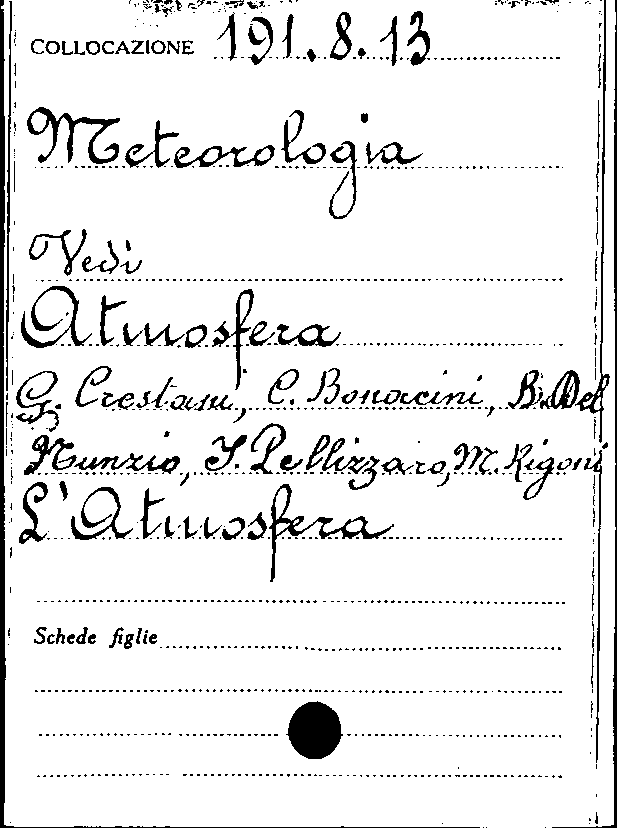 COLLOCAZIONE 191.8.13
Meteorologia
Vedi
Atmosfera
G. Crestani, C. Bonacini, B. Del
Nunzio, I. Pellizzaro, M. Rigoni
L'Atmosfera
Schede figlie